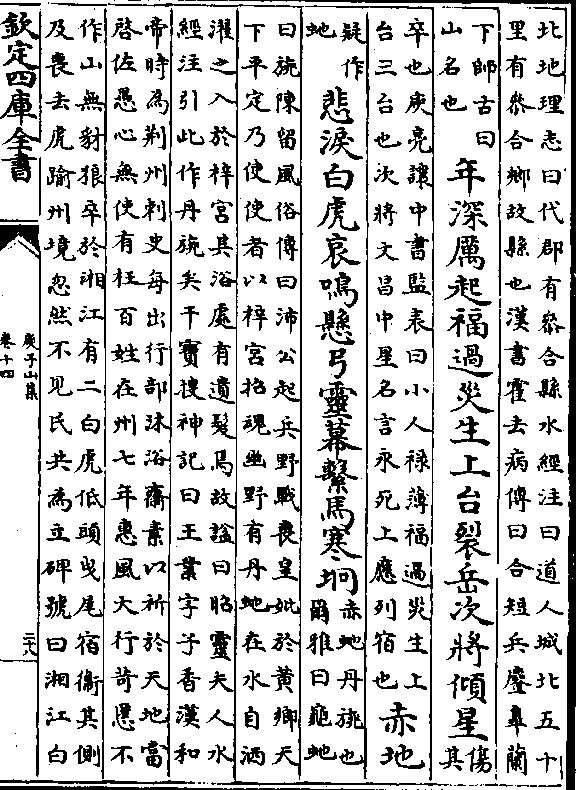 北地理志曰代郡有叅合縣水經注曰道人城北五十
里有叅合鄉故縣也漢書霍去病傳曰合短兵鏖臯蘭
下師古曰
山名也
年深厲起福過災生上台裂岳次將傾星
傷
其
卒也庾亮讓中書監表曰小人祿薄福過災生上
台三台也次將文昌中星名言永死上應列宿也
赤地
疑作
地
悲淚白虎哀鳴懸弓靈幕繫馬寒坰
赤地丹旐也
爾雅曰龜虵
曰旐陳留風俗傳曰沛公起兵野戰喪皇妣於黄鄉天
下平定乃使使者以梓宮招魂幽野有丹地在水自洒
濯之入於梓宮其浴處有遺髮焉故諡曰昭靈夫人水
經注引此作丹旐矣干寳搜神記曰王業字子香漢和
帝時為荆州刺史每出行部沐浴齋素以祈於天地當
啓佐愚心無使有枉百姓在州七年惠風大行苛慝不
作山無豺狼卒於湘江有二白虎低頭曳尾宿衞其側
及喪去虎踰州境忽然不見民共為立碑號曰湘江白
欽定四庫全書
庾子山集
卷十四
二十八